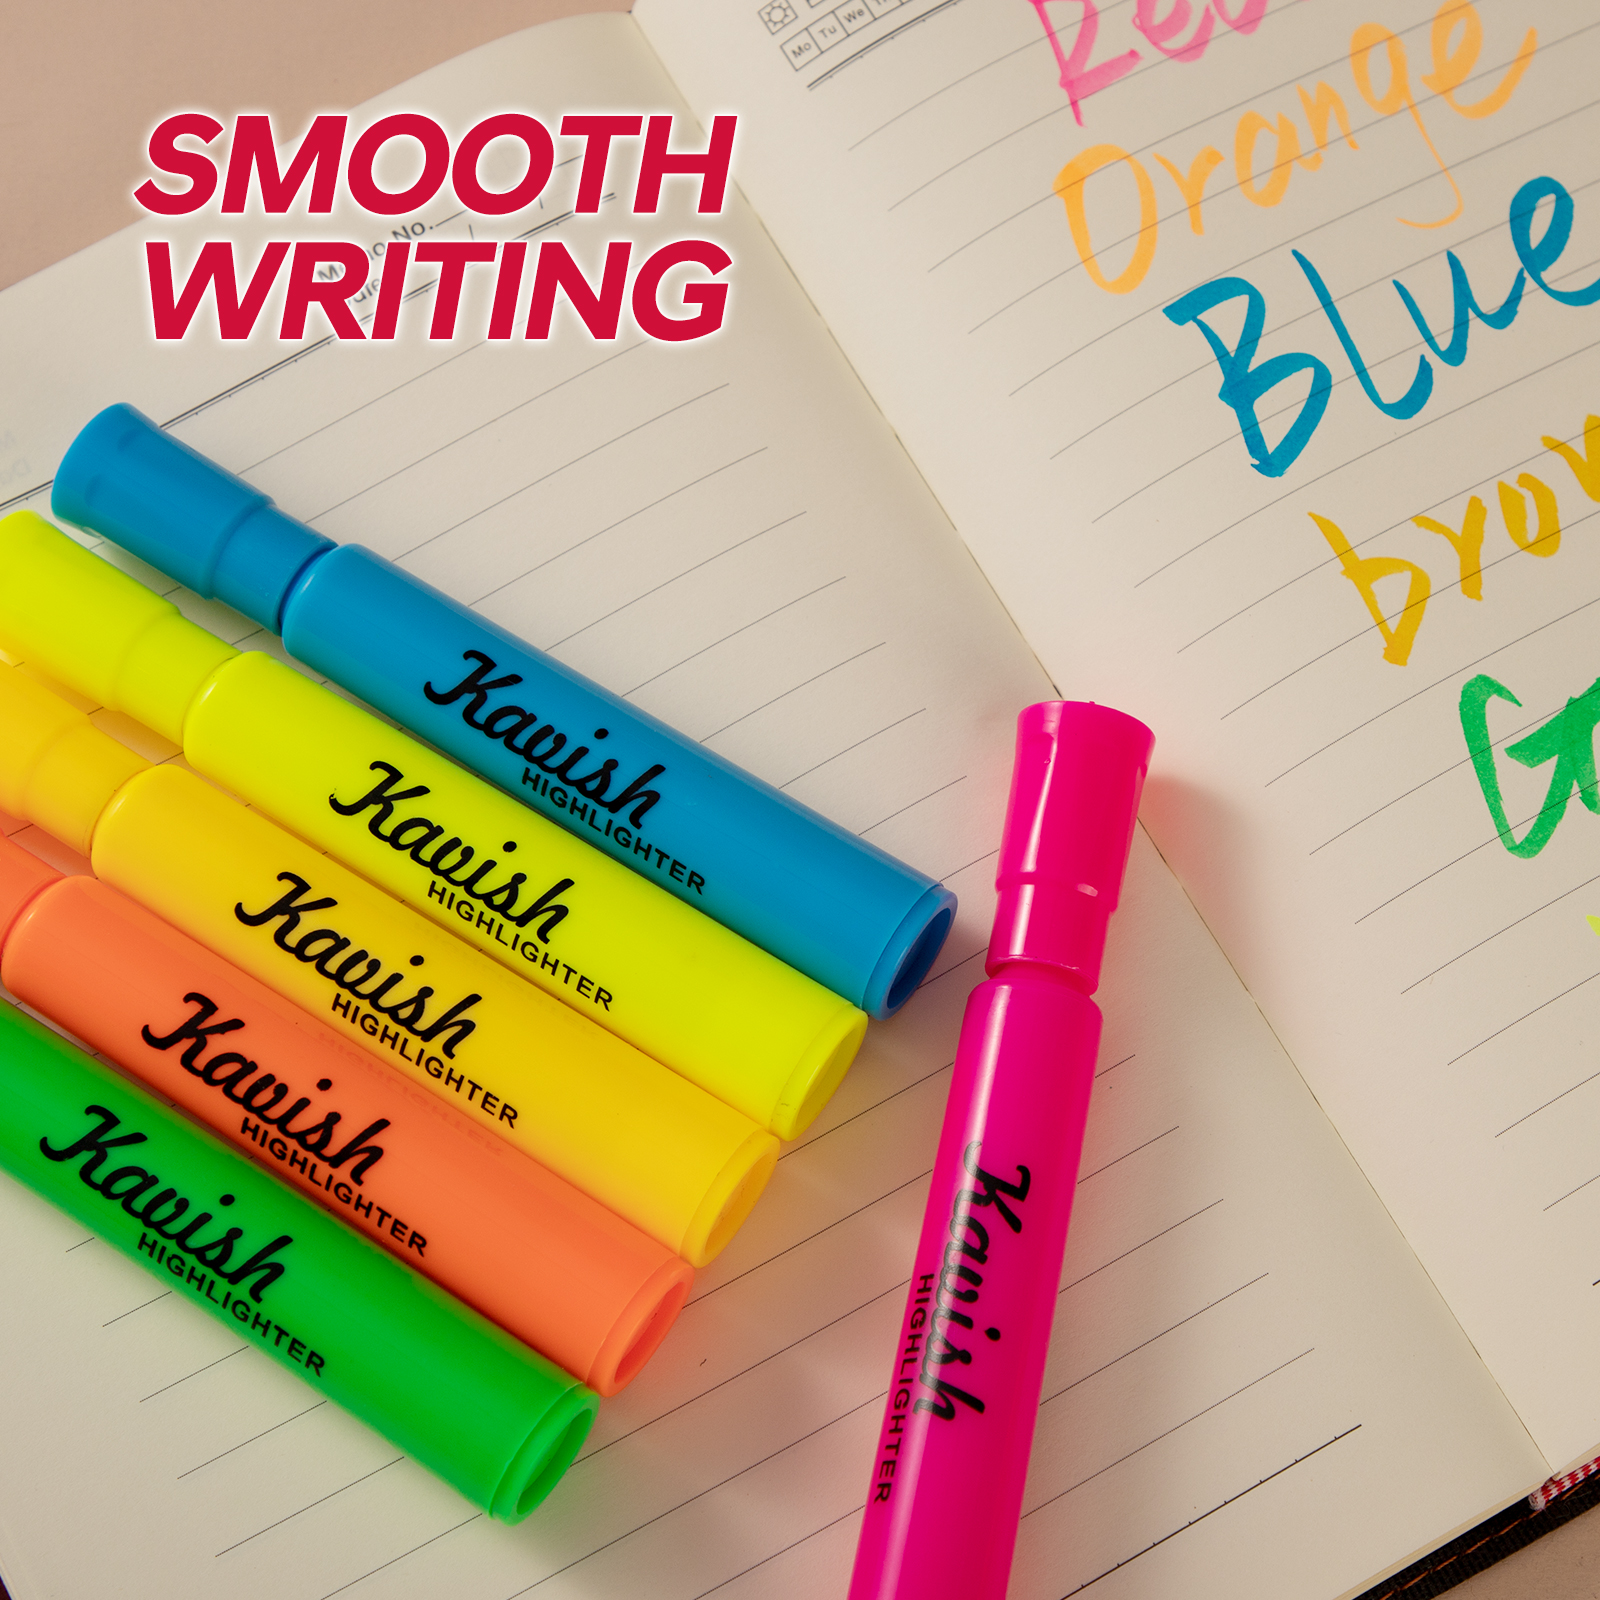 SMOOTH
WRITING
Memo No.
Mo Tu We
Orange
Blue
Kavish
HIGHLIGHTER
Kavish
HIGHLIGHTER
Kavish
HIGHLIGHTER
Kavish
HIGHLIGHTER
Kavish
HIGHLIGHTER
Kavish
HIGHLIGHTER